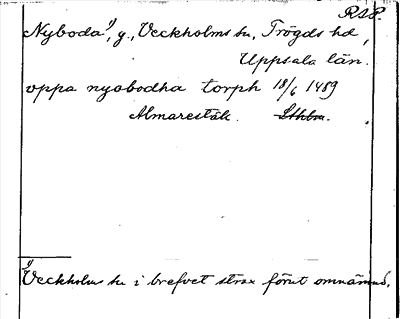 RAP.
Nyboda¹⁾, g., Veckholms sn, Trögds hd,
Uppsala län.
oppa nyabodha torph 18/6 1489
Almarestäk. Sthlm.
1) Veckholms sn i brefvet strax förut omnämnd.